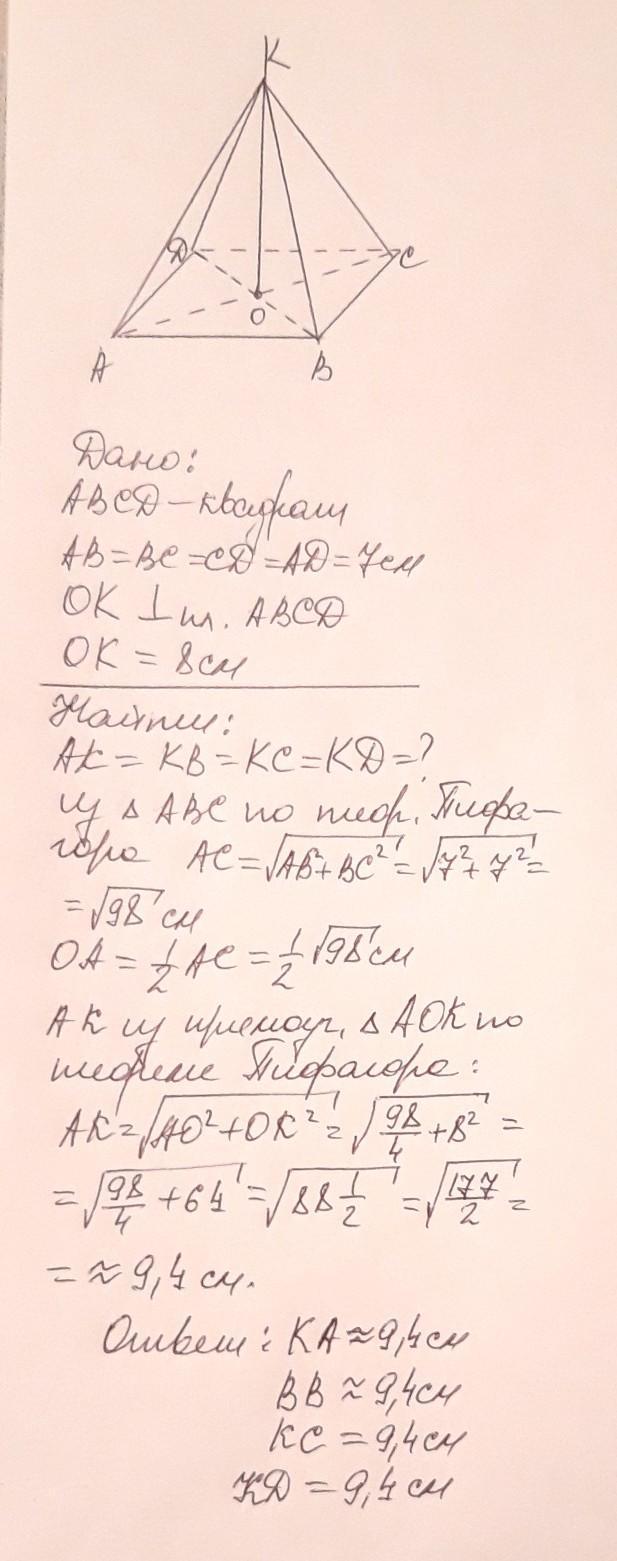 K
D
C
O
A
B
Дано:
ABCD – квадрат
AB = BC = CD = AD = 7 см
OK ⊥ пл. ABCD
OK = 8 см
Найти:
AK = KB = KC = KD = ?
из △ ABC по теор. Пифа-
гора AC = √(AB² + BC²) = √(7² + 7²) =
= √98 см
OA = 1/2 AC = 1/2 √98 см
AK из прямоуг. △ AOK по
теореме Пифагора:
AK = √(AO² + OK²) = √(98/4 + 8²) =
= √(98/4 + 64) = √(88 1/2) = √(177/2) =
= ≈ 9,4 см.
Ответ: KA ≈ 9,4 см
BB ≈ 9,4 см
KC = 9,4 см
KD = 9,4 см